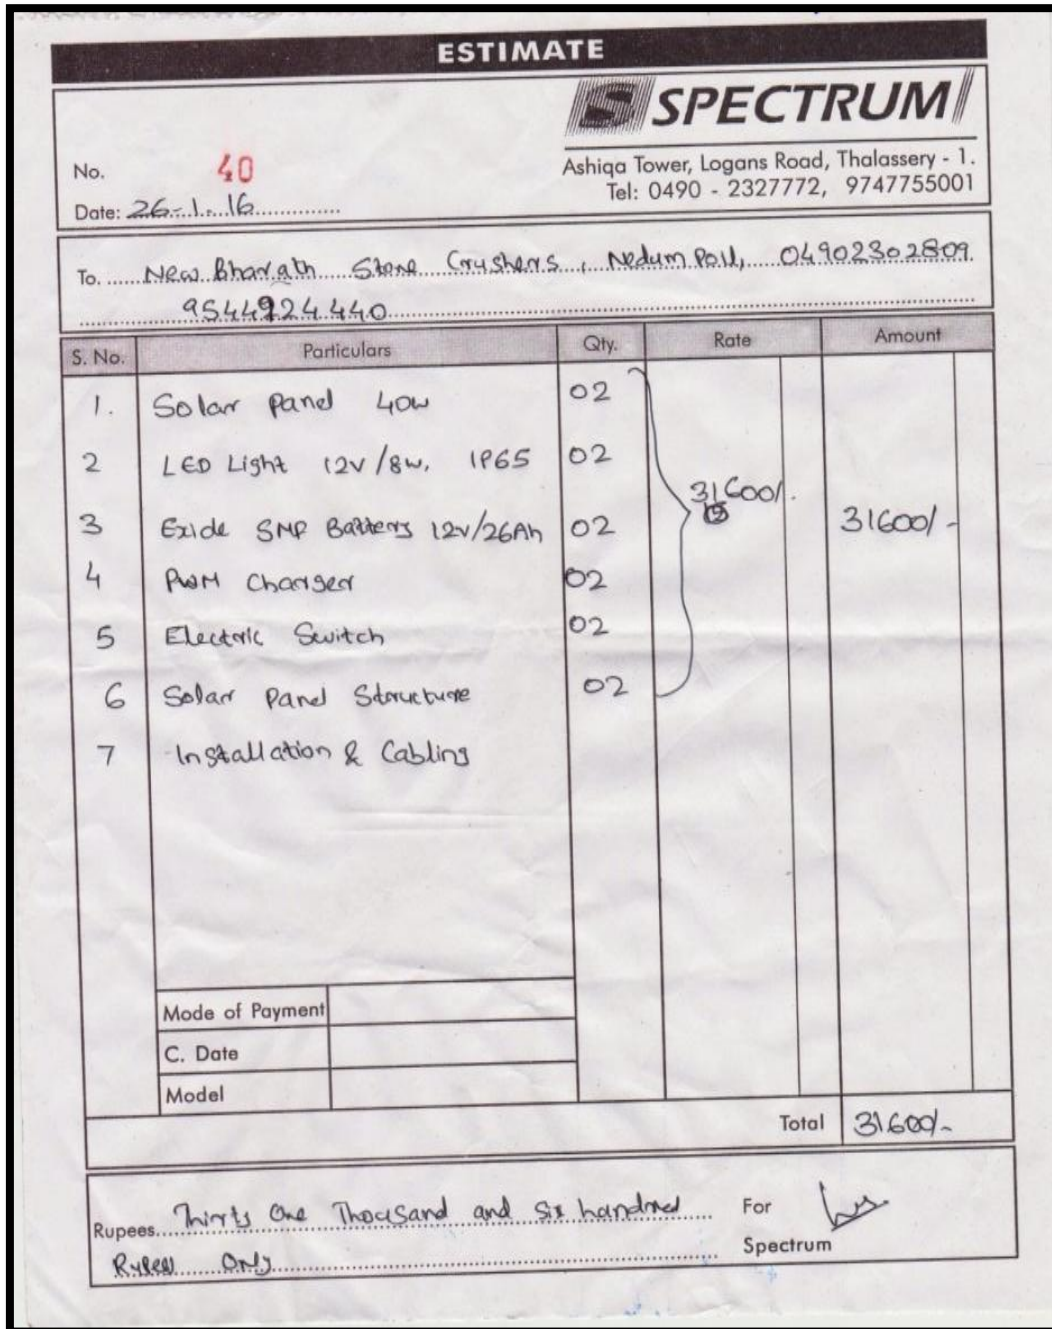 ESTIMATE
S SPECTRUM
Ashiqa Tower, Logans Road, Thalassery - 1.
Tel: 0490 - 2327772, 9747755001
No. 40
Date: 26-1-16
To. New Bharath Stone Crushers, Nedumpoil, 04902302809
9544924440
S. No. Particulars Qty. Rate Amount
1. Solar Panel 40w 02
2 LED Light 12v/8w, IP65 02
31600/-
3 Exide SMF Battery 12v/26Ah 02 31600/-
4 PWM Charger 02
5 Electric Switch 02
6 Solar Panel Structure 02
7 Installation & Cabling
Mode of Payment
C. Date
Model
Total 31600/-
Rupees Thirty One Thousand and Six handred
Rupees Only
For
Spectrum